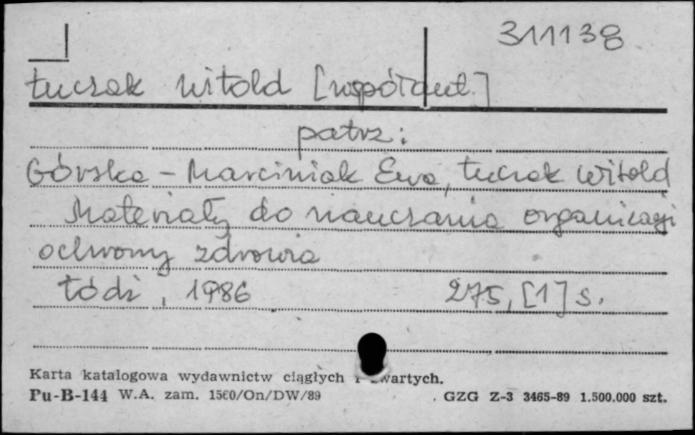 311138
Łuczak Witold [współaut.]
patrz:
Górska - Marciniak Ewa, Łuczak Witold
Materiały do nauczania organizacji
ochrony zdrowia
Łódź, 1986 275, [1] s.
Karta katalogowa wydawnictw ciągłych i zwartych.
Pu-B-144 W.A. zam. 1560/On/DW/89 GZG Z-3 3465-89 1.500.000 szt.